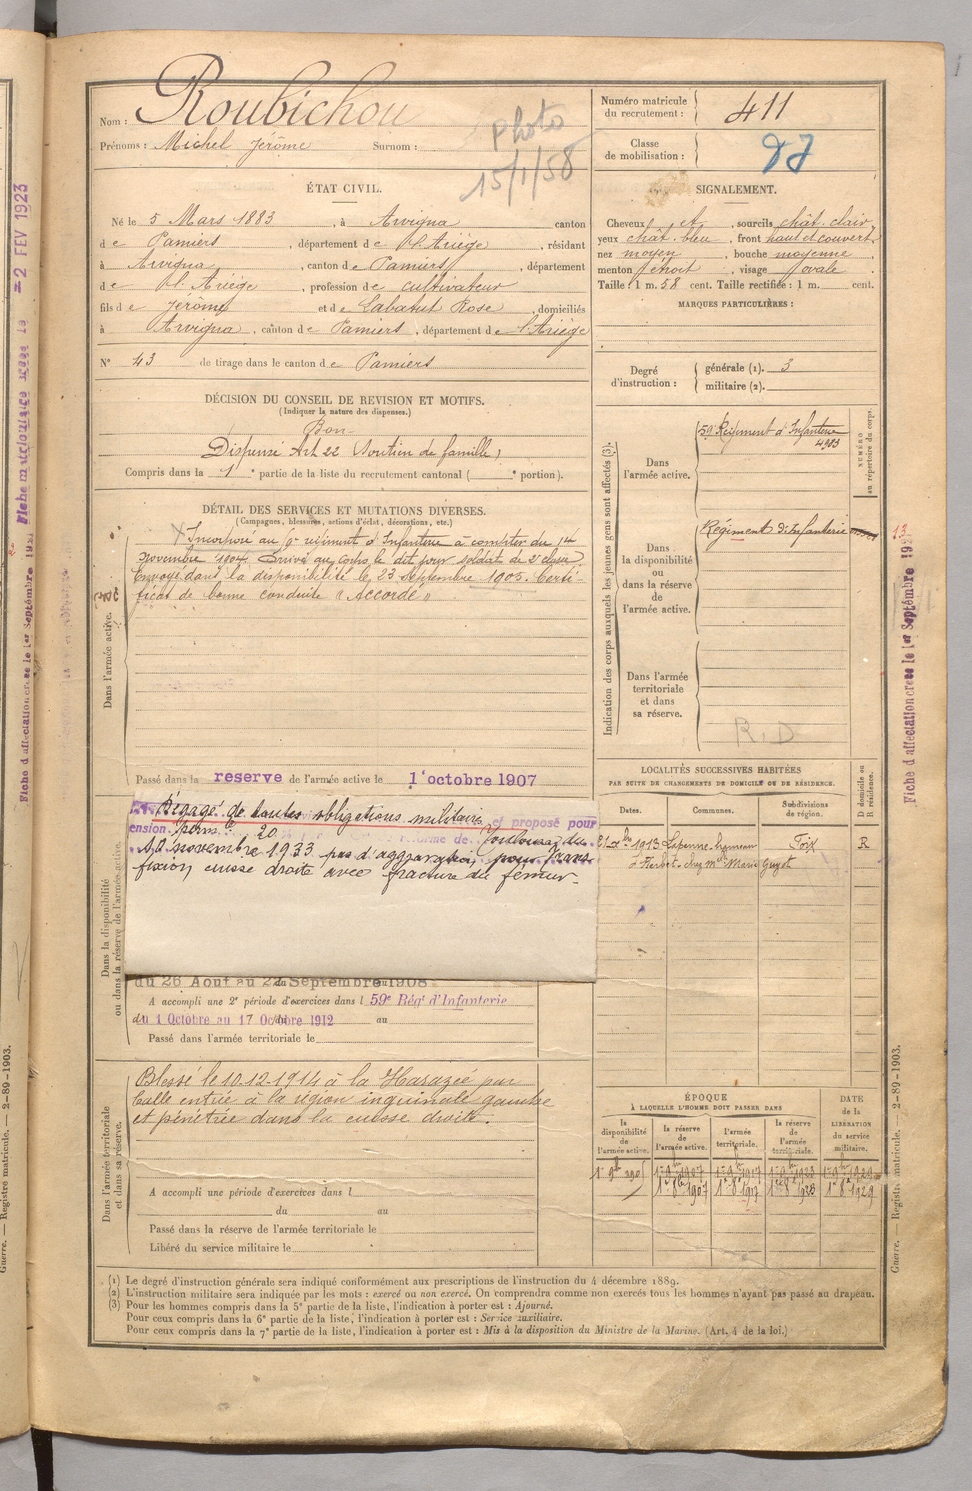 Nom : Roubichou
Prénoms : Michel Jérôme Surnom :
Photo
15/1/58
Numéro matricule
du recrutement : 411
Classe
de mobilisation :
ÉTAT CIVIL.
Né le 5 Mars 1883, à Arvigna canton
de Pamiers, département de l'Ariège, résidant
à Arvigna, canton de Pamiers, département
de l'Ariège, profession de cultivateur
fils de Jérôme et de Labatut Rose, domiciliés
à Arvigna, canton de Pamiers, département de l'Ariège
N° 43 de tirage dans le canton de Pamiers
SIGNALEMENT.
Cheveux et, sourcils chât. clair,
yeux chât. bleu, front haut et couvert,
nez moyen, bouche moyenne,
menton étroit, visage ovale.
Taille : 1 m. 58 cent. Taille rectifiée : 1 m. cent.
MARQUES PARTICULIÈRES :
Degré
d'instruction :
générale (1). 3
militaire (2).
DÉCISION DU CONSEIL DE REVISION ET MOTIFS.
(Indiquer la nature des dispenses.)
Bon
Dispensé Art 22 (Soutien de famille)
Compris dans la 1e partie de la liste du recrutement cantonal ( e portion).
DÉTAIL DES SERVICES ET MUTATIONS DIVERSES.
(Campagnes, blessures, actions d'éclat, décorations, etc.)
Dans l'armée active.
Incorporé au 9e régiment d'Infanterie à compter du 14
novembre 1904. Arrivé au corps le dit jour soldat de 2e classe
Envoyé dans la disponibilité le 23 septembre 1905. Certi-
ficat de bonne conduite "Accordé"
Passé dans la reserve de l'armée active le 1 octobre 1907
Dans la disponibilité
ou dans la réserve de l'armée active.
Dégagé de toutes obligations militaires et proposé pour
ension perm. 20 Toulouse du
novembre 1933 pas d'aggravation pour trans
fixion cuisse droite avec fracture du fémur.
du 26 Aout au Septembre 1908
A accompli une 2e période d'exercices dans l 59e Rég' d'Infanterie
du 1 Octobre au 17 Octobre 1912 au
Passé dans l'armée territoriale le
Dans l'armée territoriale
et dans sa réserve.
Blessé le 10.12.1914 à la Harazée par
balle entrée à la région inguinale gauche
et pénétrée dans la cuisse droite.
A accompli une période d'exercices dans l
du au
Passé dans la réserve de l'armée territoriale le
Libéré du service militaire le
Indication des corps auxquels les jeunes gens sont affectés (3).
NUMÉRO
au répertoire du corps.
Dans
l'armée active.
59e Régiment d'Infanterie
Dans
la disponibilité
ou
dans la réserve
de
l'armée active.
Régiment d'Infanterie
Dans l'armée
territoriale
et dans
sa réserve.
R.D
LOCALITÉS SUCCESSIVES HABITÉES
PAR SUITE DE CHANGEMENTS DE DOMICILE OU DE RÉSIDENCE.
Dates. Communes. Subdivisions
de région.
D domicile ou
R résidence.
1913 Lapenne hameau Foix R
chez Marie
ÉPOQUE
À LAQUELLE L'HOMME DOIT PASSER DANS
la
disponibilité
de
l'armée active.
la réserve
de
l'armée active.
l'armée
territoriale.
la réserve
de
l'armée
territoriale.
DATE
de la
LIBÉRATION
du service
militaire.
(1) Le degré d'instruction générale sera indiqué conformément aux prescriptions de l'instruction du 4 décembre 1889.
(2) L'instruction militaire sera indiquée par les mots : exercé ou non exercé. On comprendra comme non exercés tous les hommes n'ayant pas passé au drapeau.
(3) Pour les hommes compris dans la 5e partie de la liste, l'indication à porter est : Ajourné.
Pour ceux compris dans la 6e partie de la liste, l'indication à porter est : Service auxiliaire.
Pour ceux compris dans la 7e partie de la liste, l'indication à porter est : Mis à la disposition du Ministre de la Marine. (Art. 4 de la loi.)
Guerre. — Registre matricule. — 2-89-1903.
Guerre. — Registre matricule. — 2-89-1903.
Fiche d'affectation créée le 1er Septembre 192
2 FEV 1923